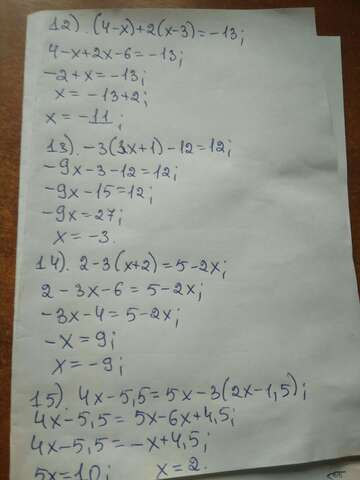 12). (4-x)+2(x-3)=-13;
4-x+2x-6=-13;
-2+x=-13;
x=-13+2;
x=-11;
13). -3(3x+1)-12=12;
-9x-3-12=12;
-9x-15=12;
-9x=27;
x=-3.
14). 2-3(x+2)=5-2x;
2-3x-6=5-2x;
-3x-4=5-2x;
-x=9;
x=-9;
15). 4x-5,5=5x-3(2x-1,5);
4x-5,5=5x-6x+4,5;
4x-5,5=-x+4,5;
5x=10; x=2.